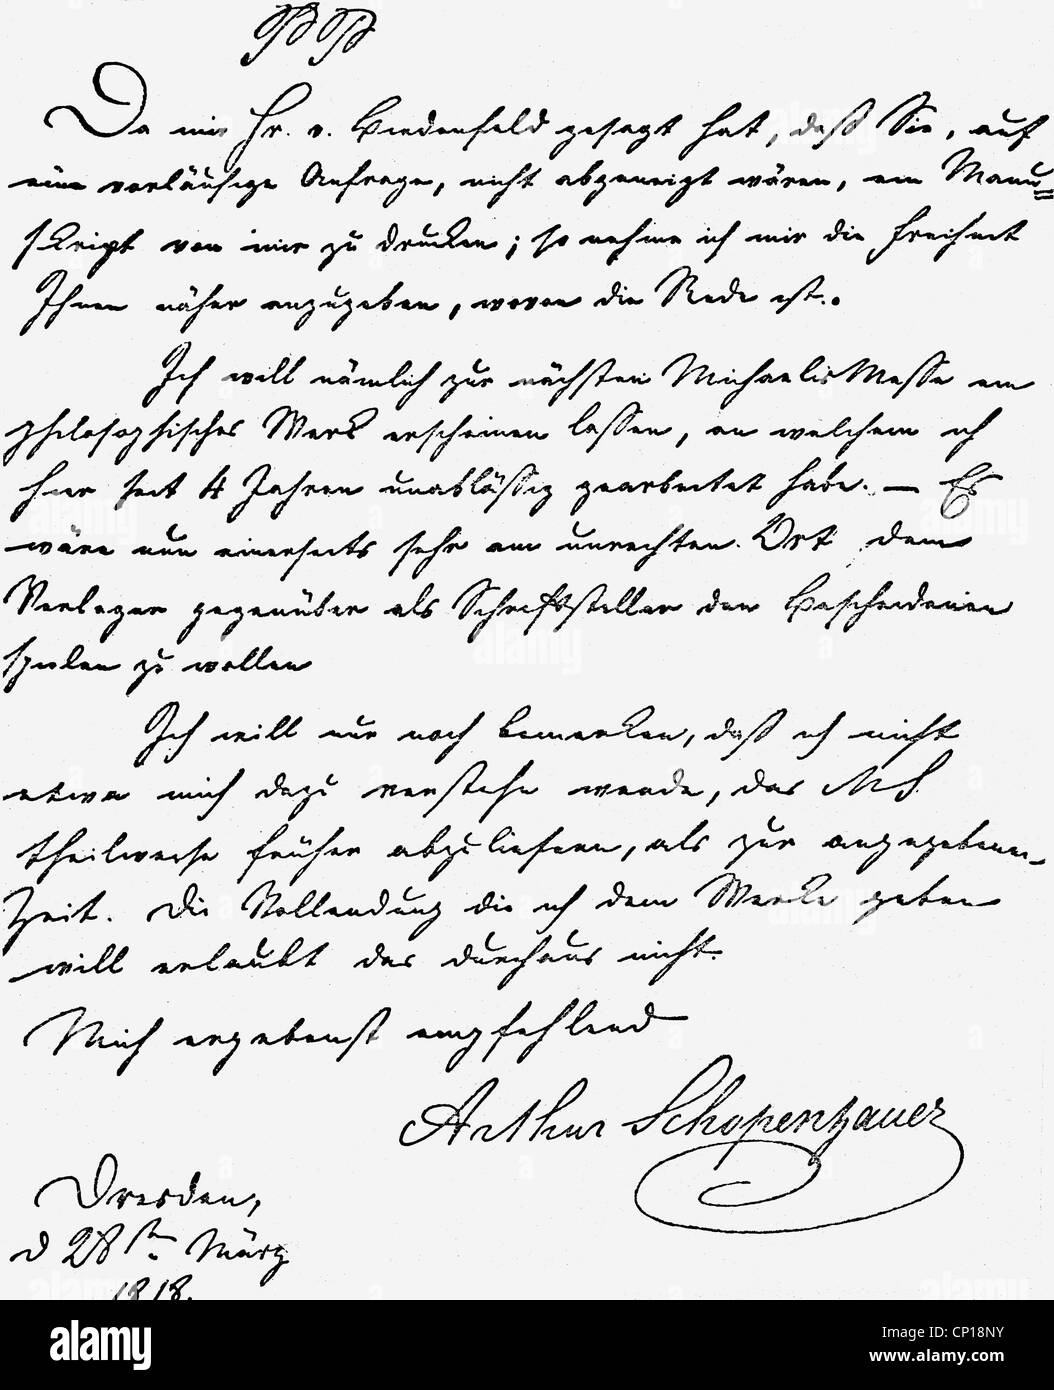 PP
Da mir Hr. v. Biedenfeld gesagt hat, daß Sie, auf
eine vorläufige Anfrage, nicht abgeneigt wären, ein Manu=
skript von mir zu drucken; so nehme ich mir die Freiheit
Ihnen näher anzugeben, wovon die Rede ist.
Ich will nämlich zur nächsten Michaelis Messe ein
philosophisches Werk erscheinen lassen, an welchem ich
hier seit 4 Jahren unablässig gearbeitet habe. — Es
wäre nun einerseits sehr am unrechten Ort dem
Verleger gegenüber als Schriftsteller den Bescheidenen
spielen zu wollen
Ich will nur noch bemerken, daß ich nicht
etwa mich dazu verstehn werde, das MS.
theilweise früher abzuliefern, als zur angegebenen
Zeit. Die Vollendung die ich dem Werke geben
will erlaubt das durchaus nicht.
Mich ergebenst empfehlend
Arthur Schopenhauer
Dresden,
d 28sten März
1818.
alamy
Image ID: CP18NY
www.alamy.com